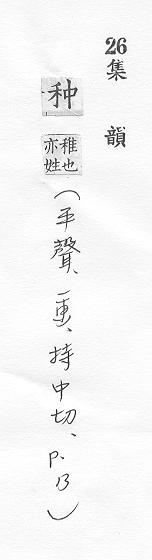 26集韻
种
稚也
亦姓
(平聲、一東、持中切、P.13)